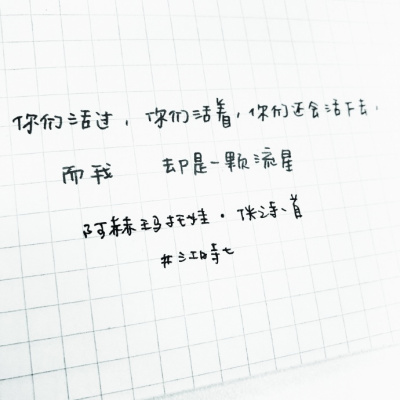 你们活过,你们活着,你们还会活下去,
而我 却是一颗流星
阿赫玛托娃·佚诗一首
#江时七